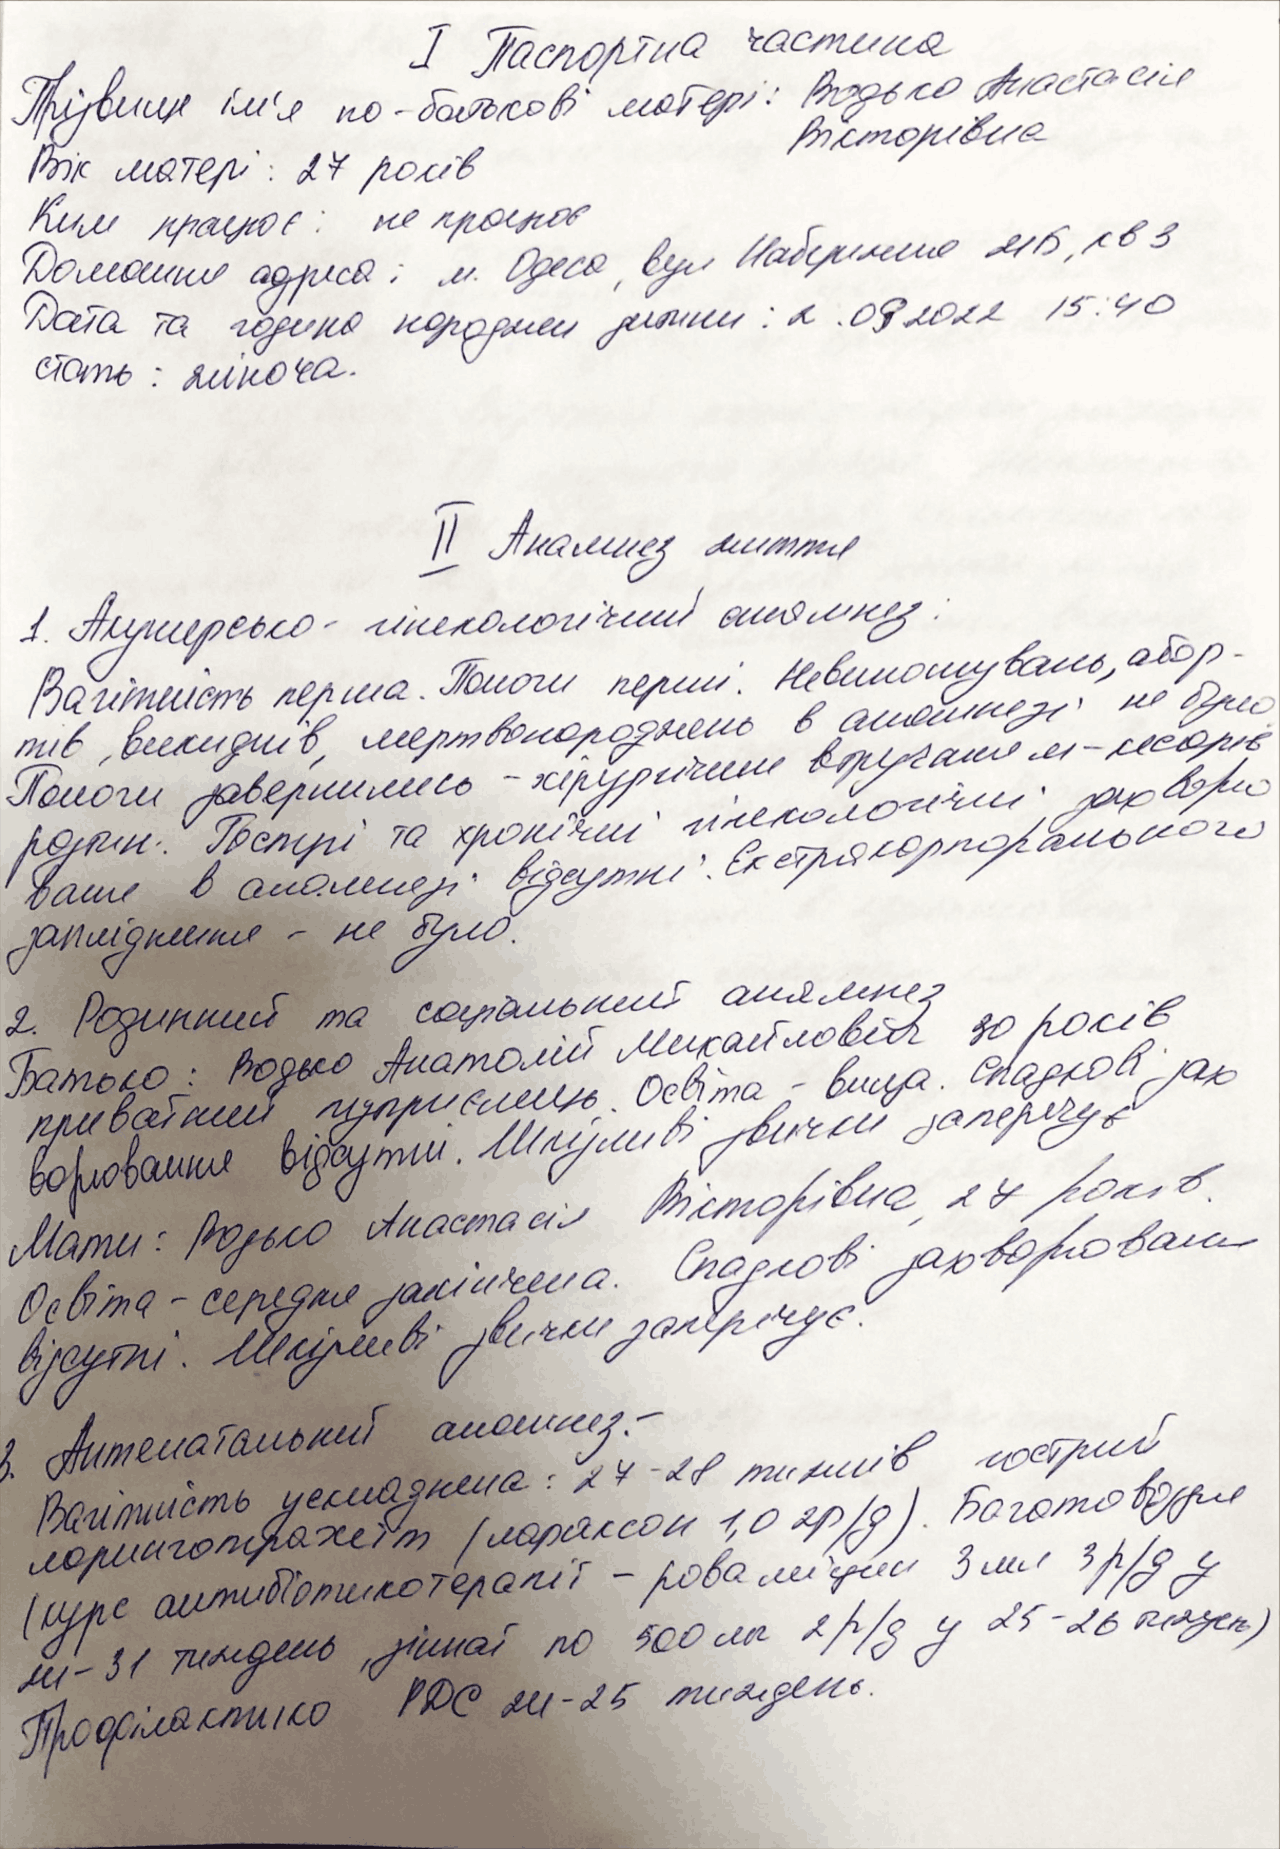 I Паспортна частина
Прізвище ім'я по-батькові матері: Водько Анастасія
Вікторівна
Вік матері: 27 років
Ким працює: не працює
Домашня адреса: м. Одеса, вул Набережна 21Б, кв 3
Дата та година народжен дитини: 2.09 2022 15:40
стать: жіноча.
II Анамнез життя
1. Акушерсько-гінекологічний анамнез:
Вагітність перша. Пологи перші. Невиношувань, абор-
тів, викиднів, мертвонароджень в анамнезі не було
Пологи завершились - хірургічним втручанням - кесарів
розтин. Гострі та хронічні гінекологічні захворю
вання в анамнезі відсутні. Екстракорпорального
запліднення - не було.
2. Родинний та соціальний анамнез
Батько: Водько Анатолій Михайлович 30 років
приватний підприємець. Освіта - вища. Спадкові зах
ворювання відсутні. Шкідливі звички заперечує
Мати: Водько Анастасія Вікторівна, 27 років.
Освіта - середня закінчена. Спадкові захворюван
відсутні. Шкідливі звички заперечує.
3. Антенатальний анамнез:-
Вагітність ускладнена: 27-28 тижнів гострий
ларинготрахеїт (лораксон 1,0 2р/д). Багатоводдя
(курс антибіотикотерапії - роваміцин 3 мл 3р/д у
31 тиждень, зіннат по 500 мг 2р/д у 25-26 тиждень)
Профілактика РДС 24-25 тиждень.